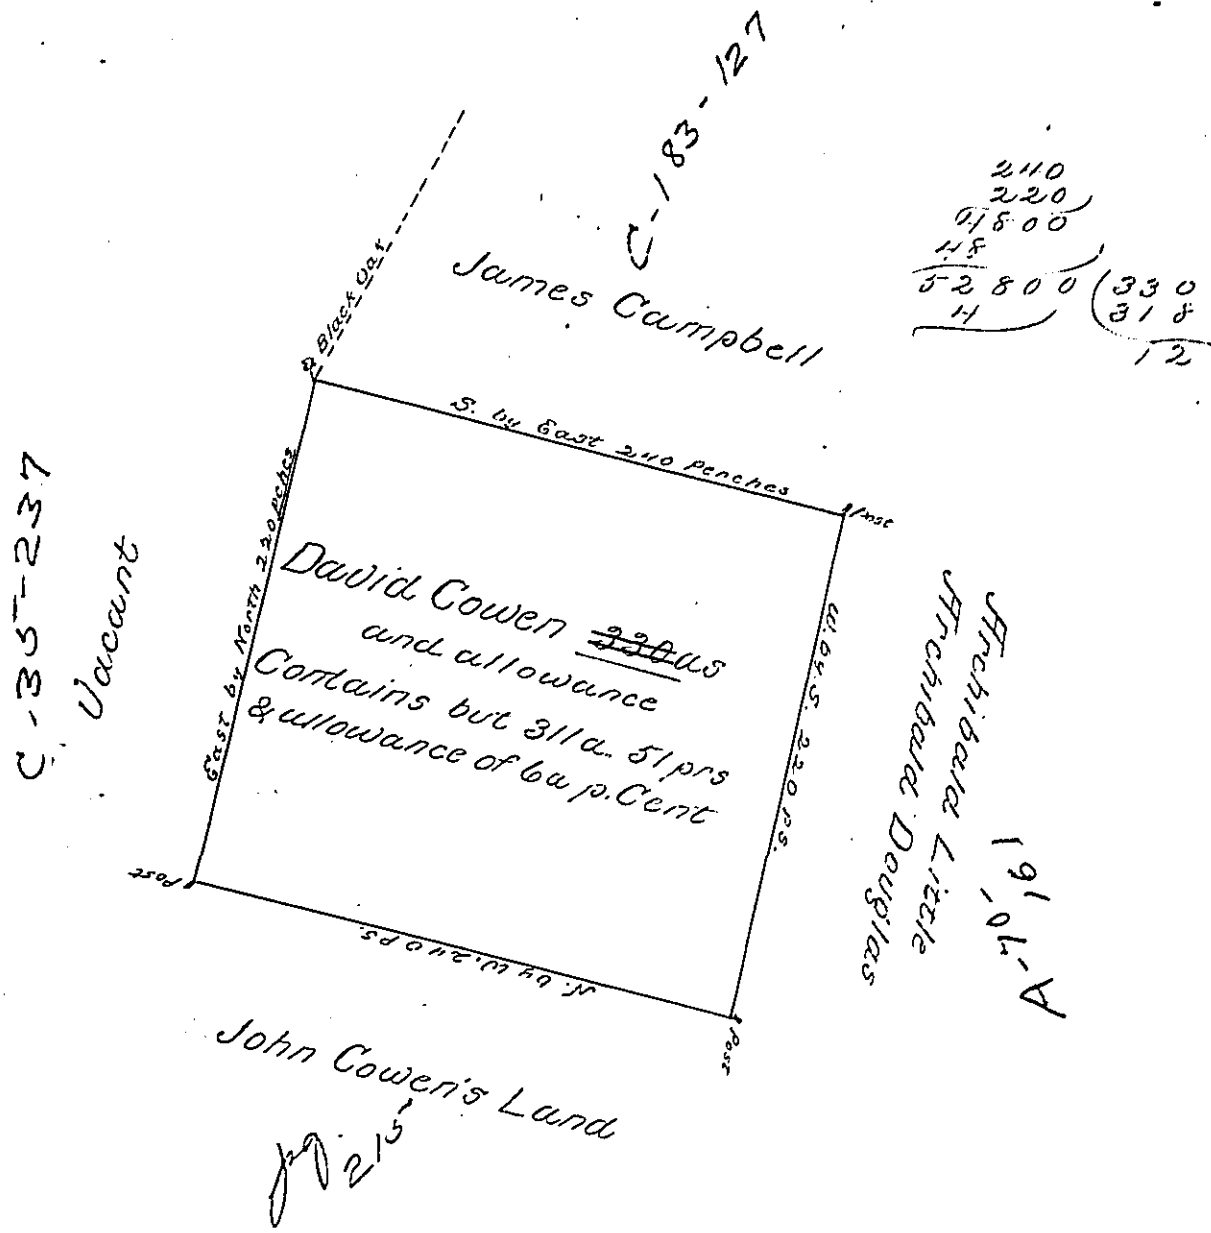 C-183-127
240
220
4800
48
52800 (330
4 318
12
James Campbell
a Black Oak
S. by East 240 Perches
Post
C-35-237
Vacant
East by North 220 pches
David Cowen 330 as
and allowance
Contains but 311 a. 51 prs
& allowance of 6 a p. Cent
W. by S. 220 ps.
Archibald Little
Archibald Douglas
A-40-
161
Post
N. by W. 240 ps.
Post
John Cowen's Land
pg. 215